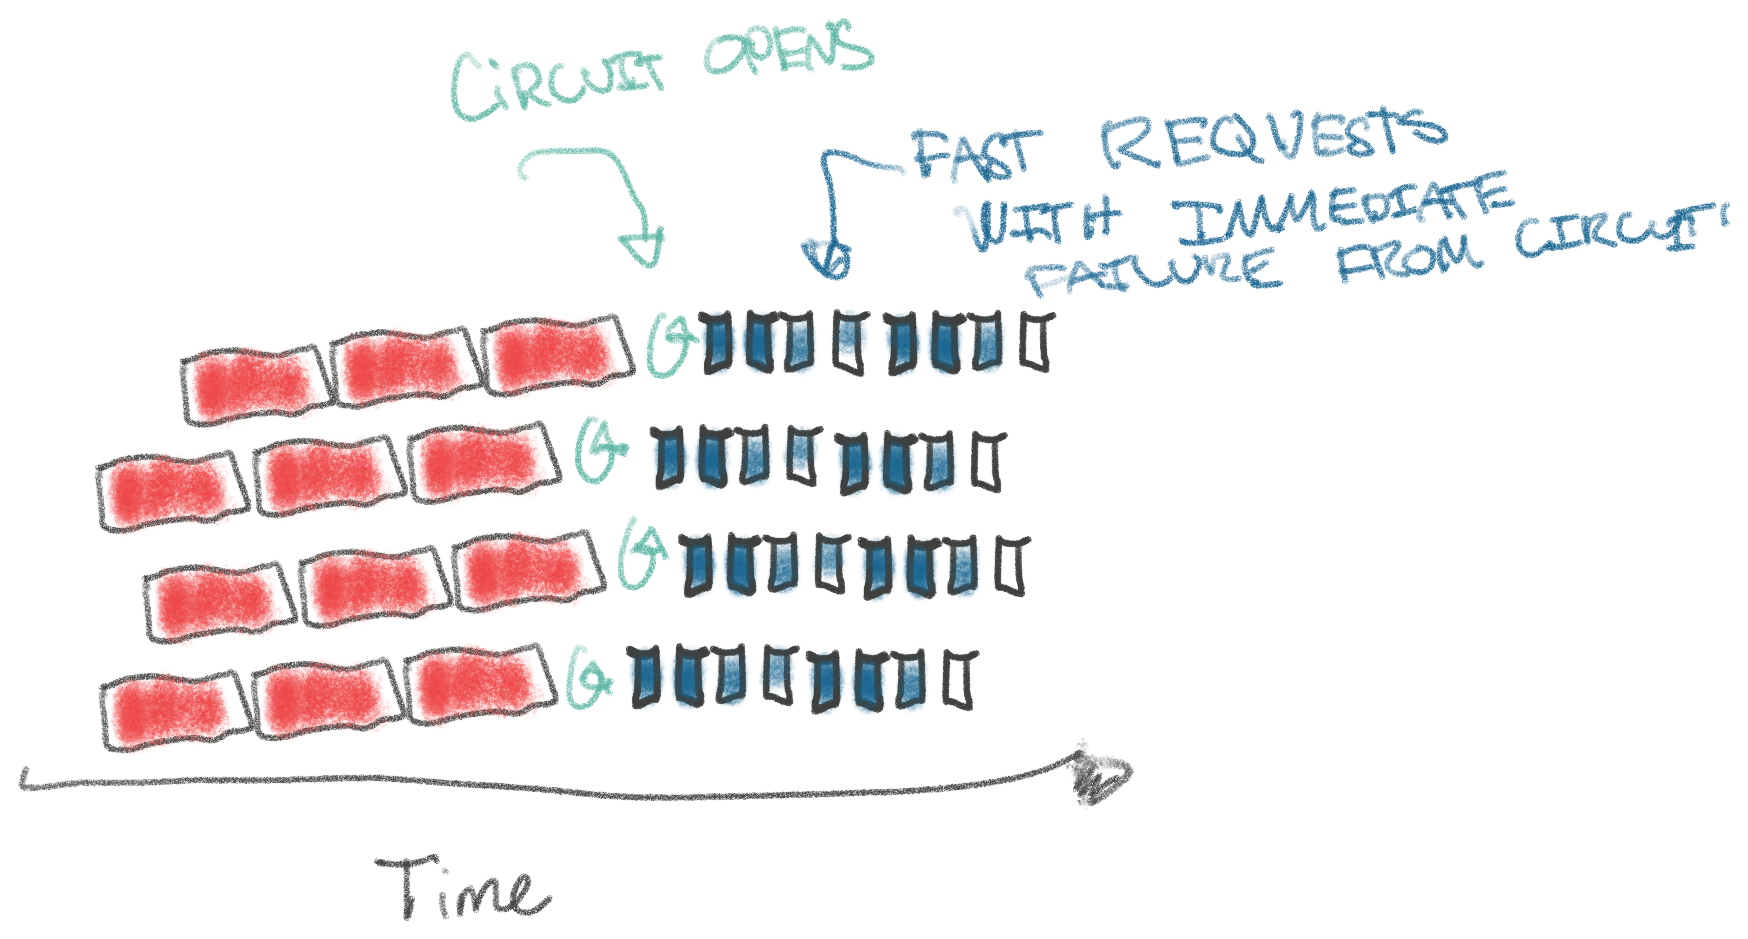 CiRCUIT OPENS
FAST REQUESTS
WITH IMMEDIATE
FAILURE FROM CIRCUIT,
Time